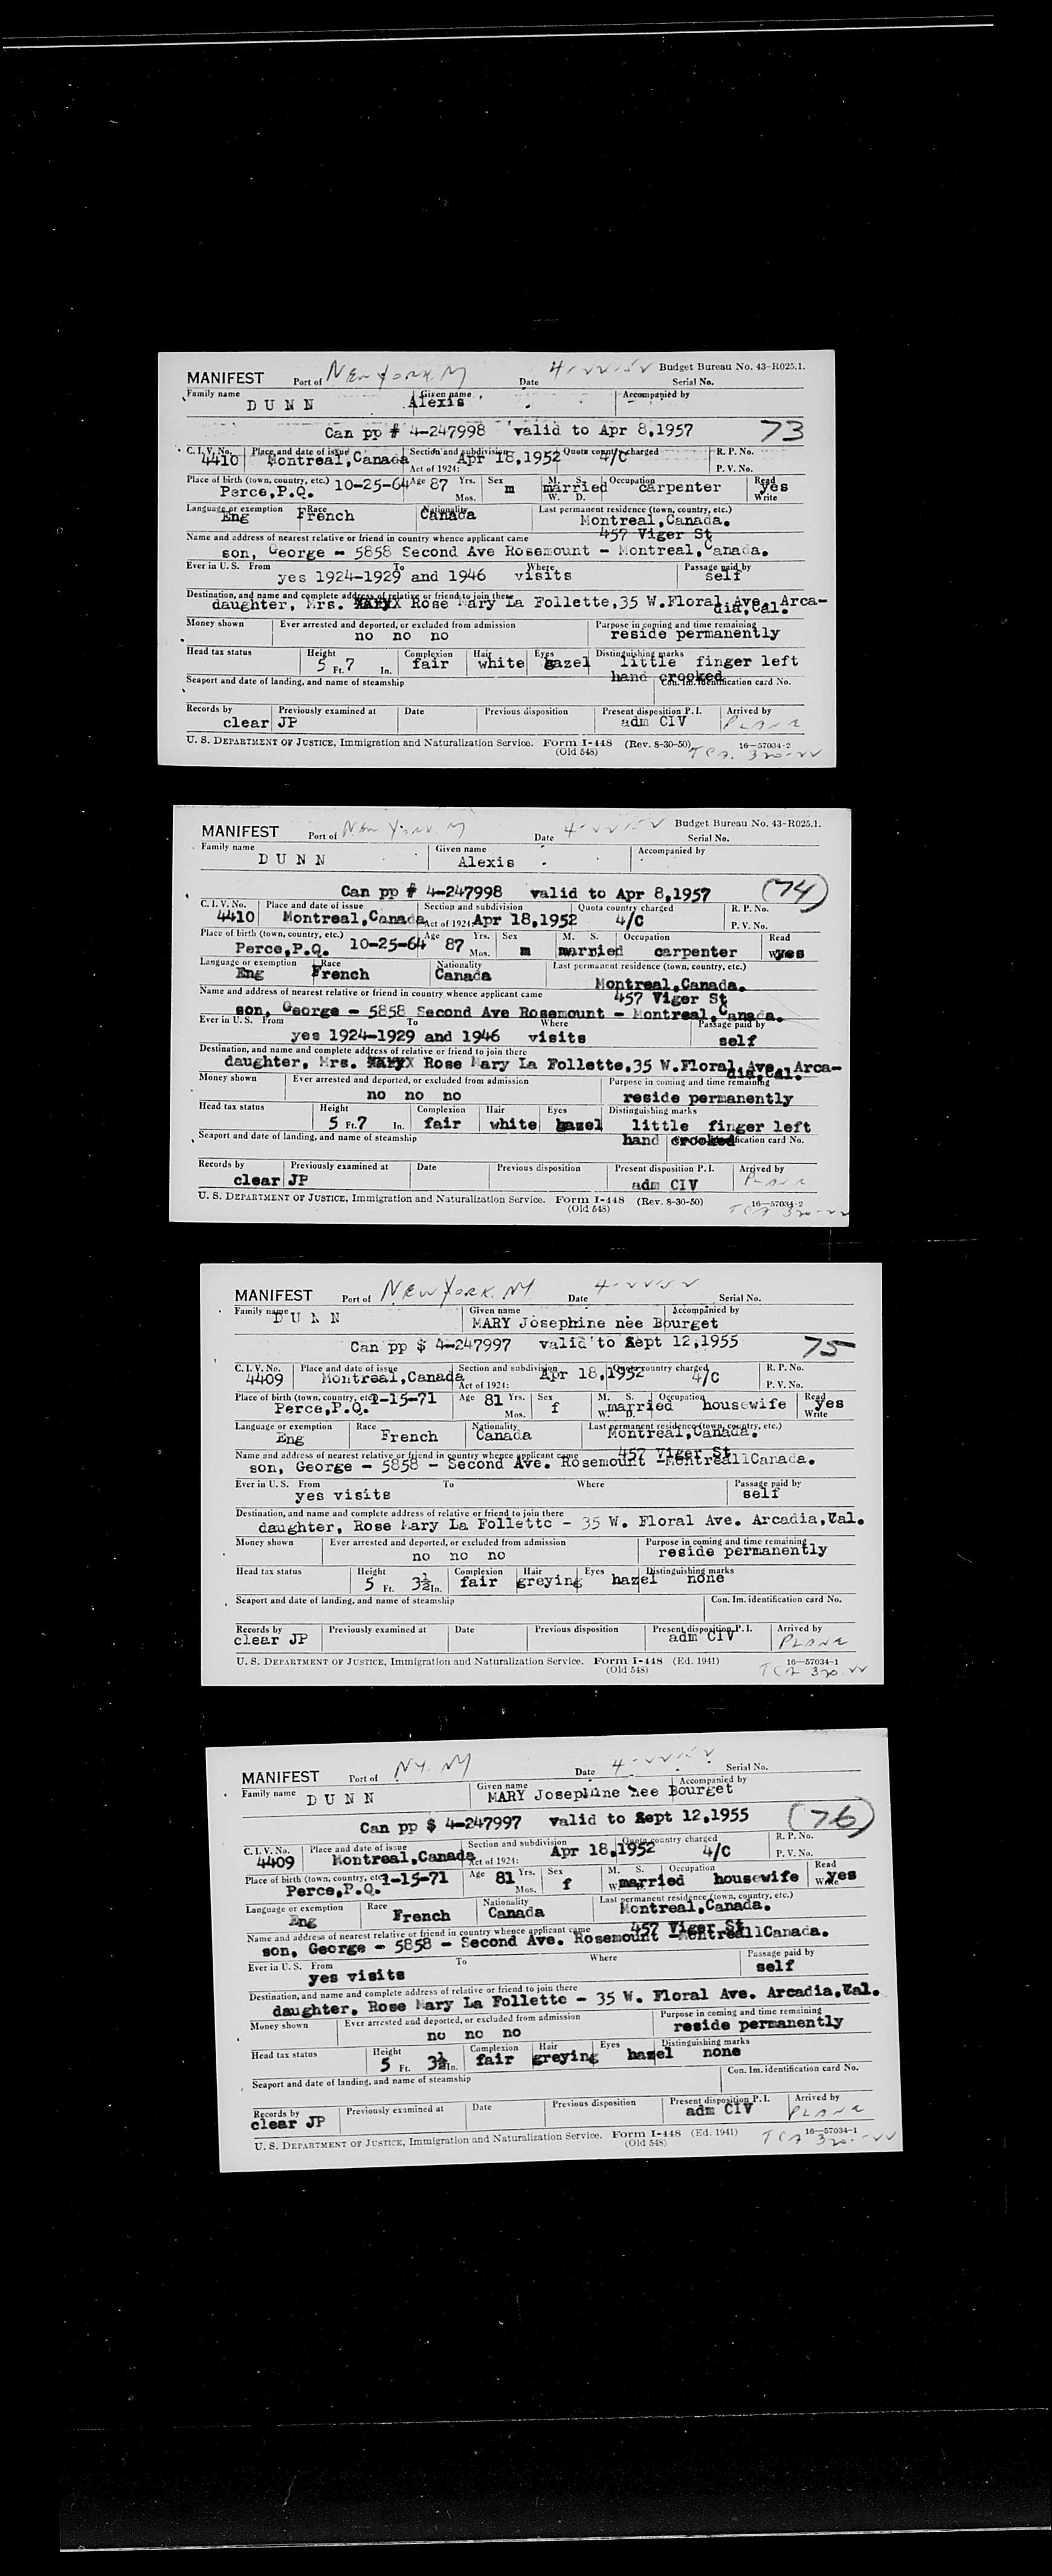 MANIFEST Port of New York. NY Date 4-22-52 Budget Bureau No. 43-R025.1.
Serial No.
Family name Given name Accompanied by
DUNN Alexis
Can pp # 4-247998 valid to Apr 8,1957 73
C. I. V. No. Place and date of issue Section and subdivision Quota country charged R. P. No.
4410 Montreal,Canada Act of 1924: Apr 18,1952 4/C P. V. No.
Place of birth (town, country, etc.) Age Yrs. Sex M. S. Occupation Read
Perce,P.Q. 10-25-64 87 Mos. m married W. D. carpenter yes Write
Language or exemption Race Nationality Last permanent residence (town, country, etc.)
Eng French Canada Montreal,Canada.
Name and address of nearest relative or friend in country whence applicant came 457 Viger St
son, George - 5858 Second Ave Rosemount - Montreal,Canada.
Ever in U. S. From To Where Passage paid by
yes 1924-1929 and 1946 visits self
Destination, and name and complete address of relative or friend to join there
daughter, Mrs. Rose Mary La Follette,35 W.Floral Ave. Arca-
dia,Cal.
Money shown Ever arrested and deported, or excluded from admission Purpose in coming and time remaining
no no no reside permanently
Head tax status Height Complexion Hair Eyes Distinguishing marks
5 Ft. 7 In. fair white hazel little finger left
hand crooked
Seaport and date of landing, and name of steamship Con. Im. identification card No.
Records by Previously examined at Date Previous disposition Present disposition P. I. Arrived by
clear JP adm CIV PLANE
U. S. DEPARTMENT OF JUSTICE, Immigration and Naturalization Service. Form I-448 (Rev. 8-30-50) 16—57034-2
(Old 548) TCA. 320-22
MANIFEST Port of New York. NY Date 4-22-52 Budget Bureau No. 43-R025.1.
Serial No.
Family name Given name Accompanied by
DUNN Alexis
Can pp # 4-247998 valid to Apr 8,1957 (74)
C. I. V. No. Place and date of issue Section and subdivision Quota country charged R. P. No.
4410 Montreal,Canada Act of 1924: Apr 18,1952 4/C P. V. No.
Place of birth (town, country, etc.) Age Yrs. Sex M. S. Occupation Read
Perce,P.Q. 10-25-64 87 Mos. m married carpenter yes
Language or exemption Race Nationality Last permanent residence (town, country, etc.)
Eng French Canada Montreal,Canada.
Name and address of nearest relative or friend in country whence applicant came 457 Viger St
son, George - 5858 Second Ave Rosemount - Montreal,Canada.
Ever in U. S. From To Where Passage paid by
yes 1924-1929 and 1946 visits self
Destination, and name and complete address of relative or friend to join there
daughter, Mrs. Rose Mary La Follette,35 W.Floral Ave. Arca-
dia,Cal.
Money shown Ever arrested and deported, or excluded from admission Purpose in coming and time remaining
no no no reside permanently
Head tax status Height Complexion Hair Eyes Distinguishing marks
5 Ft. 7 In. fair white hazel little finger left
Seaport and date of landing, and name of steamship hand crooked identification card No.
Records by Previously examined at Date Previous disposition Present disposition P. I. Arrived by
clear JP adm CIV PLANE
U. S. DEPARTMENT OF JUSTICE, Immigration and Naturalization Service. Form I-448 (Rev. 8-30-50) 16—57034-2
(Old 548) TCA 320-22
MANIFEST Port of New York. NY Date 4-22-52 Serial No.
Family name Given name Accompanied by
DUNN MARY Josephine nee Bourget
Can pp $ 4-247997 valid to Sept 12,1955 75
C. I. V. No. Place and date of issue Section and subdivision Quota country charged R. P. No.
4409 Montreal,Canada Act of 1924: Apr 18,1952 4/C P. V. No.
Place of birth (town, country, etc.) Age Yrs. Sex M. S. Occupation Read
Perce,P.Q. 1-15-71 81 Mos. f married W. D. housewife yes Write
Language or exemption Race Nationality Last permanent residence (town, country, etc.)
Eng French Canada Montreal,Canada.
Name and address of nearest relative or friend in country whence applicant came 457 Viger St.
son, George - 5858 - Second Ave. Rosemount -MontreallCanada.
Ever in U. S. From To Where Passage paid by
yes visits self
Destination, and name and complete address of relative or friend to join there
daughter, Rose Mary La Follette - 35 W. Floral Ave. Arcadia,Cal.
Money shown Ever arrested and deported, or excluded from admission Purpose in coming and time remaining
no no no reside permanently
Head tax status Height Complexion Hair Eyes Distinguishing marks
5 Ft. 3½ In. fair greying hazel none
Seaport and date of landing, and name of steamship Con. Im. identification card No.
Records by Previously examined at Date Previous disposition Present disposition P. I. Arrived by
clear JP adm CIV PLANE
U. S. DEPARTMENT OF JUSTICE, Immigration and Naturalization Service. Form I-448 (Ed. 1941) 16—57034-1
(Old 548) TCA 320-22
MANIFEST Port of NY. NY Date 4-22-52 Serial No.
Family name Given name Accompanied by
DUNN MARY Josephine nee Bourget
Can pp $ 4-247997 valid to Sept 12,1955 (76)
C. I. V. No. Place and date of issue Section and subdivision Quota country charged R. P. No.
4409 Montreal,Canada Act of 1924: Apr 18,1952 4/C P. V. No.
Place of birth (town, country, etc.) Age Yrs. Sex M. S. Occupation Read
Perce,P.Q. 1-15-71 81 Mos. f married W. housewife yes Write
Language or exemption Race Nationality Last permanent residence (town, country, etc.)
Eng French Canada Montreal,Canada.
Name and address of nearest relative or friend in country whence applicant came 457 Viger St.
son, George - 5858 - Second Ave. Rosemount -MontreallCanada.
Ever in U. S. From To Where Passage paid by
yes visits self
Destination, and name and complete address of relative or friend to join there
daughter, Rose Mary La Follette - 35 W. Floral Ave. Arcadia,Cal.
Money shown Ever arrested and deported, or excluded from admission Purpose in coming and time remaining
no no no reside permanently
Head tax status Height Complexion Hair Eyes Distinguishing marks
5 Ft. 3½ In. fair greying hazel none
Seaport and date of landing, and name of steamship Con. Im. identification card No.
Records by Previously examined at Date Previous disposition Present disposition P. I. Arrived by
clear JP adm CIV PLANE
U. S. DEPARTMENT OF JUSTICE, Immigration and Naturalization Service. Form I-448 (Ed. 1941) 16—57034-1
(Old 548) TCA 320-22